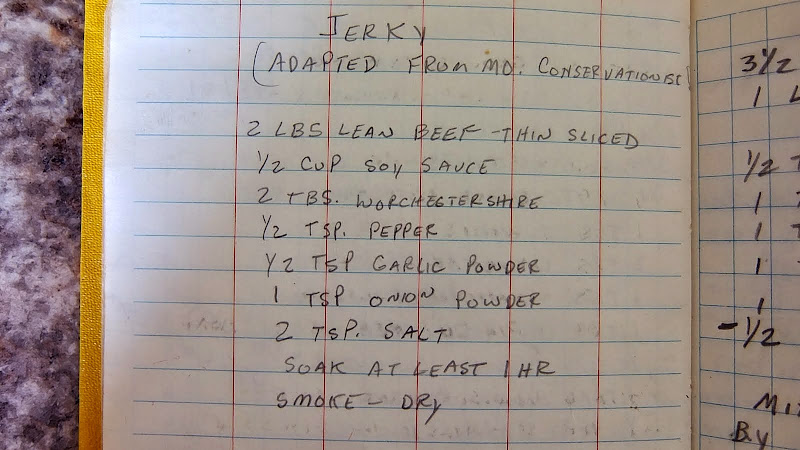 JERKY
(ADAPTED FROM MO. CONSERVATIONIST
2 LBS LEAN BEEF - THIN SLICED
1/2 CUP SOY SAUCE
2 TBS. WORCHESTERSHIRE
1/2 TSP. PEPPER
1/2 TSP GARLIC POWDER
1 TSP ONION POWDER
2 TSP. SALT
SOAK AT LEAST 1 HR
SMOKE - DRY
3 1/2
1
1/2
1
1
1
1
- 1/2
By